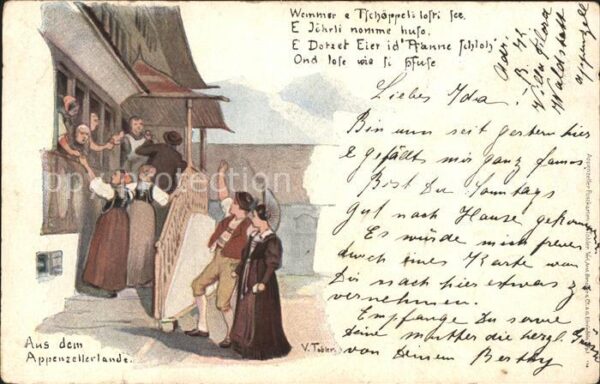 Wemmer e Tschöppeli losti see.
E Jöhrli nomme huso.
E Dotzet Eier id' Pfanne schloh'
Ond lose wie si pfuse
Adr.
B. H.
Villa Flora
Waldstatt
Appenzell
Liebes Ida!
Bin nun seit gestern hier
& gefällts mir ganz famos.
Bist Du Sonntags
gut nach Hause gekommen
Es würde mich freuen
durch eines Karte von
Dir nach hier etwas z
vernehmen.
Empfange Du sowie
deine mutter die herzl. Grüsse
von deinem Berthy
Aus dem
Appenzellerlande.
V. Tobler.